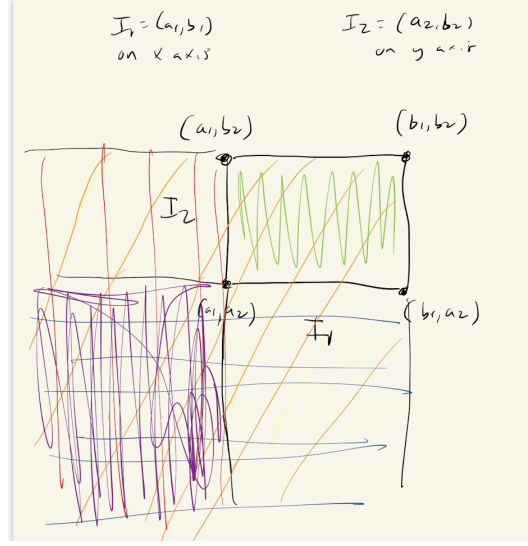 I₁ = (a₁,b₁)
on x axis
I₂ = (a₂,b₂)
on y axis
(a₁,b₂)
(b₁,b₂)
I₂
(a₁,a₂)
I₁
(b₁,a₂)